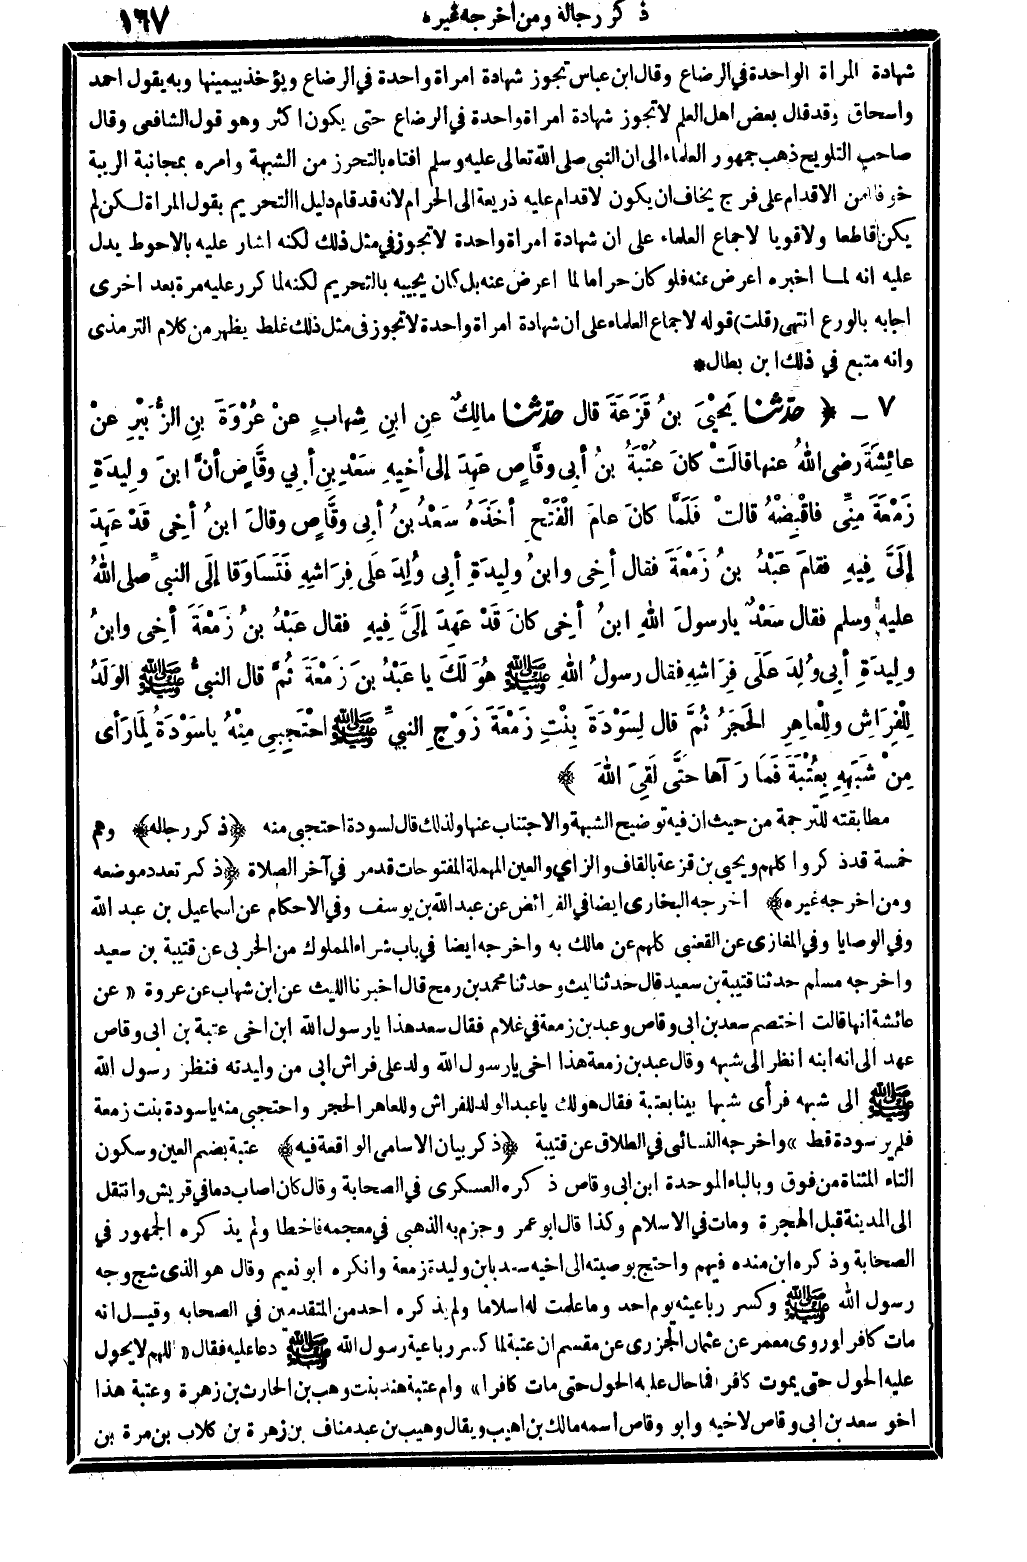 ذكر رجاله ومن أخرجه غيره ١٦٧
شهادة المرأة الواحدة في الرضاع وقال ابن عباس تجوز شهادة امرأة واحدة في الرضاع ويؤخذ بيمينها وبه يقول احمد
واسحاق وقد قال بعض اهل العلم لا تجوز شهادة امرأة واحدة في الرضاع حتى يكون اكثر وهو قول الشافعى وقال
صاحب التلويح ذهب جمهور العلماء الى ان النبي صلى الله تعالى عليه وسلم افتاه بالتحرز من الشبهة وامره بمجانبة الريبة
خوفا من الاقدام على فرج يخاف ان يكون لاقدام عليه ذريعة الى الحرام لانه قد قام دليل التحريم بقول المرأة لكن لم
يكن قاطعا ولا قويا لاجماع العلماء على ان شهادة امرأة واحدة لا تجوز في مثل ذلك لكنه اشار عليه بالاحوط يدل
عليه انه لما اخبره اعرض عنه فلو كان حراما لما اعرض عنه بل كان يجيبه بالتحريم لكنه لما كرر عليه مرة بعد اخرى
اجابه بالورع انتهى (قلت) قوله لاجماع العلماء على ان شهادة امرأة واحدة لا تجوز في مثل ذلك غلط يظهر من كلام الترمذى
وانه متبع في ذلك ابن بطال *
٧ ـ ﴿ حدثنا يَحْيَى بنُ قَزَعَةَ قال حدثنا مالِكٌ عنِ ابنِ شِهابٍ عنْ عُرْوَةَ بنِ الزُّبَيْرِ عنْ
عائِشَةَ رضى اللهُ عنها قالَتْ كانَ عُتْبَةُ بنُ أبى وقَّاصٍ عَهِدَ إلى أخيهِ سَعْدِ بنِ أبي وقَّاصٍ أنَّ ابنَ ولِيدَةِ
زَمْعَةَ مِنِّي فاقْبِضْهُ قالتْ فَلَمَّا كانَ عامَ الْفَتْحِ أخَذَهُ سَعْدُ بنُ أبى وقَّاصٍ وقالَ ابنُ أخِى قَدْ عَهِدَ
إلَىَّ فِيهِ فقامَ عَبْدُ بنُ زَمْعَةَ فقال أخِى وابنُ ولِيدَةِ أبِى وُلِدَ عَلَى فِرَاشِهِ فَتَسَاوَقا إلَى النبيِّ صلى اللهُ
عليه وسلم فقال سَعْدٌ يارسولَ اللهِ ابنُ أخِى كانَ قَدْ عَهِدَ إلَىَّ فِيهِ فقال عَبْدُ بنُ زَمْعَةَ أخِى وابنُ
ولِيدَةِ أبِى وُلِدَ عَلَى فِرَاشِهِ فقال رسولُ اللهِ ﷺ هُوَ لَكَ يا عَبْدُ بنَ زَمْعَةَ ثُمَّ قال النبىُّ ﷺ الوَلَدُ
لِلْفِرَاشِ ولِلْعاهِرِ الحَجَرُ ثُمَّ قال لِسَوْدَةَ بِنْتِ زَمْعَةَ زَوْجِ النبيِّ ﷺ احْتَجِبِى مِنْهُ ياسَوْدَةُ لِمَا رَأى
مِنْ شَبَهِهِ بِعُتْبَةَ فَمَا رَآها حَتَّى لَقِىَ اللهَ ﴾
مطابقته للترجمة من حيث ان فيه توضيح الشبهة والاجتناب عنها ولذلك قال لسودة احتجبى منه ﴿ذكر رجاله﴾ وهم
خمسة قد ذكروا كلهم ويحيى بن قزعة بالقاف والزاي والعين المهملة المفتوحات قد مر في آخر الصلاة ﴿ذكر تعدد موضعه
ومن اخرجه غيره﴾ اخرجه البخارى ايضا في الفرائض عن عبد الله بن يوسف وفي الاحكام عن اسماعيل بن عبد الله
وفي الوصايا وفي المغازى عن القعنبى كلهم عن مالك به واخرجه ايضا في باب شراء المملوك من الحربى عن قتيبة بن سعيد
واخرجه مسلم حدثنا قتيبة بن سعيد قال حدثنا ليث وحدثنا محمد بن رمح قال اخبرنا الليث عن ابن شهاب عن عروة « عن
عائشة انها قالت اختصم سعد بن ابى وقاص وعبد بن زمعة في غلام فقال سعد هذا يارسول الله ابن اخى عتبة بن ابى وقاص
عهد الى انه ابنه انظر الى شبهه وقال عبد بن زمعة هذا اخى يارسول الله ولد على فراش ابى من وليدته فنظر رسول الله
ﷺ الى شبهه فرأى شبها بينا بعتبة فقال هو لك ياعبد الولد للفراش وللعاهر الحجر واحتجبى منه ياسودة بنت زمعة
فلم ير سودة قط » واخرجه النسائى في الطلاق عن قتيبة ﴿ذكر بيان الاسامى الواقعة فيه﴾ عتبة بضم العين وسكون
التاء المثناة من فوق وبالباء الموحدة ابن ابى وقاص ذكره العسكرى في الصحابة وقال كان اصاب دما في قريش وانتقل
الى المدينة قبل الهجرة ومات في الاسلام وكذا قال ابو عمر وجزم به الذهبي في معجمه فاخطا ولم يذكره الجمهور في
الصحابة وذكره ابن منده فيهم واحتج بوصيته الى اخيه سعد بابن وليدة زمعة وانكره ابو نعيم وقال هو الذى شج وجه
رسول الله ﷺ وكسر رباعيته يوم احد وما علمت له اسلاما ولم يذكره احد من المتقدمين في الصحابه وقيل انه
مات كافرا وروى معمر عن عثمان الجزرى عن مقسم ان عتبة لما كسر رباعية رسول الله ﷺ دعا عليه فقال « اللهم لا يحول
عليه الحول حتى يموت كافرا فما حال عليه الحول حتى مات كافرا » وام عتبة هند بنت وهب بن الحارث بن زهرة وعتبة هذا
اخو سعد بن ابى وقاص لاخيه وابو وقاص اسمه مالك بن اهيب ويقال وهيب بن عبد مناف بن زهرة بن كلاب بن مرة بن